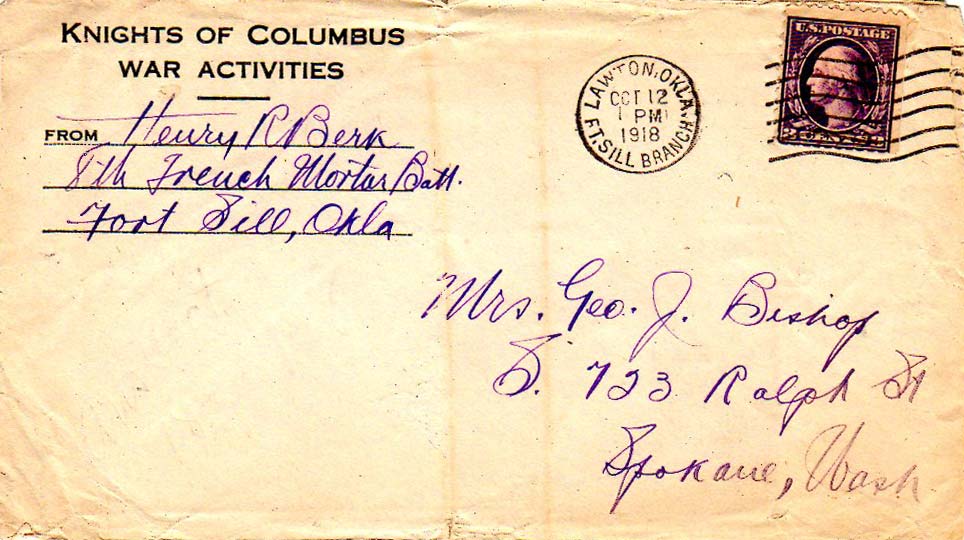 KNIGHTS OF COLUMBUS
WAR ACTIVITIES
FROM Henry R Berk
8th Trench Mortar Batt.
Fort Sill, Okla
LAWTON, OKLA.
OCT 12
1 PM
1918
FT. SILL BRANCH
U.S. POSTAGE
3 CENTS 3
Mrs. Geo. J. Bishop
S. 723 Ralph St
Spokane, Wash